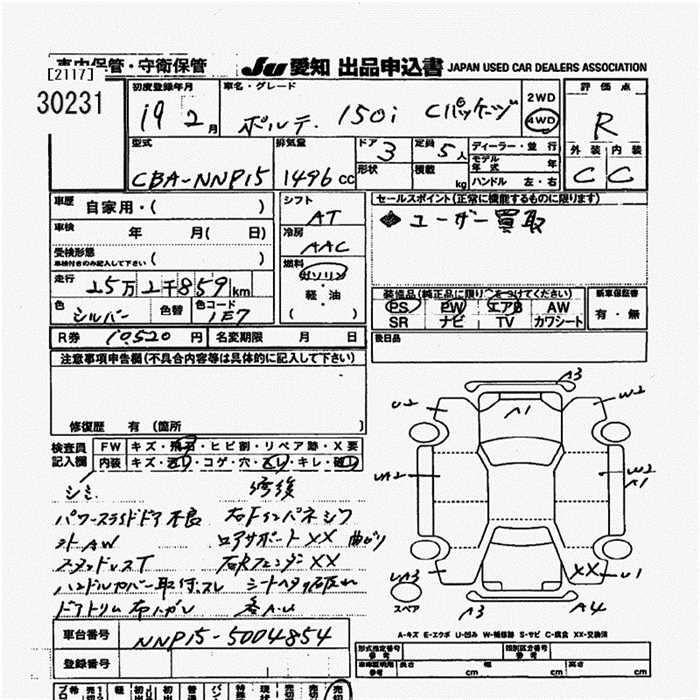 車内保管・守衛保管 JU 愛知 出品申込書 JAPAN USED CAR DEALERS ASSOCIATION
[2117]
30231
初度登録年月 車名・グレード 2WD 評価点
19 2月 ポルテ 150i Cパッケージ 4WD R
型式 排気量 ドア 3 定員 5人 ディーラー・並行 外装 内装
CBA-NNP15 1496 cc 形状 積載 kg モデル年式 年 C C
ハンドル 左・右
車歴 自家用・( ) シフト AT セールスポイント(正常に機能するものに限ります)
車検 年 月( 日) 冷房 AAC ユーザー買取
受検形態
車検付きのみ記入して下さい ( ) 燃料 ガソリン
走行 25万2千859km 軽・油 装備品(純正品に限り○をつけてください) 新車保証書
色 シルバー 色替 色コード 1E7 ( ) PS PW エアB AW 有・無
SR ナビ TV カワシート
R券 10520円 名変期限 月 日 後日品
注意事項申告欄(不具合内容等は具体的に記入して下さい)
修復歴 有 (箇所 )
検査員記入欄 FW キズ・飛石・ヒビ割・リペア跡・X要
内装 キズ・汚レ・コゲ・穴・スレ・キレ・破レ
シミ 修後
パワースライドドア不良 右Fインパネシワ
社外AW コアサポートXX 曲がり
スタッドレスT 右Fフェンダー XX
ハンドルカバー取付、スレ
ドアトリム
A3
U2 A1 W2
UA2 W2
A1
UA3 XX U1
スペア A3 A4
A-キズ E-エクボ U-凹み W-補修跡 S-サビ C-腐食 XX-交換済
車台番号 NNP15-5004854
登録番号
型式指定番号 参考 類別区分番号 参考
車体証明用 参考 長さ cm 幅 cm 高さ cm